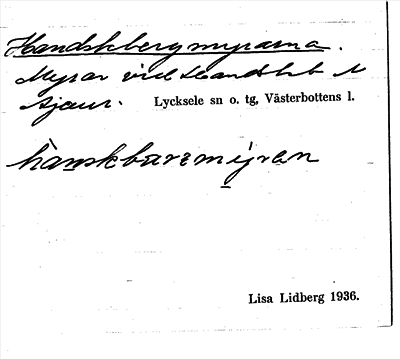 Handskbergmyrarna.
Myrar vid Handskb N
Ajaur. Lycksele sn o. tg, Västerbottens l.
hanskbarrmyran
Lisa Lidberg 1936.